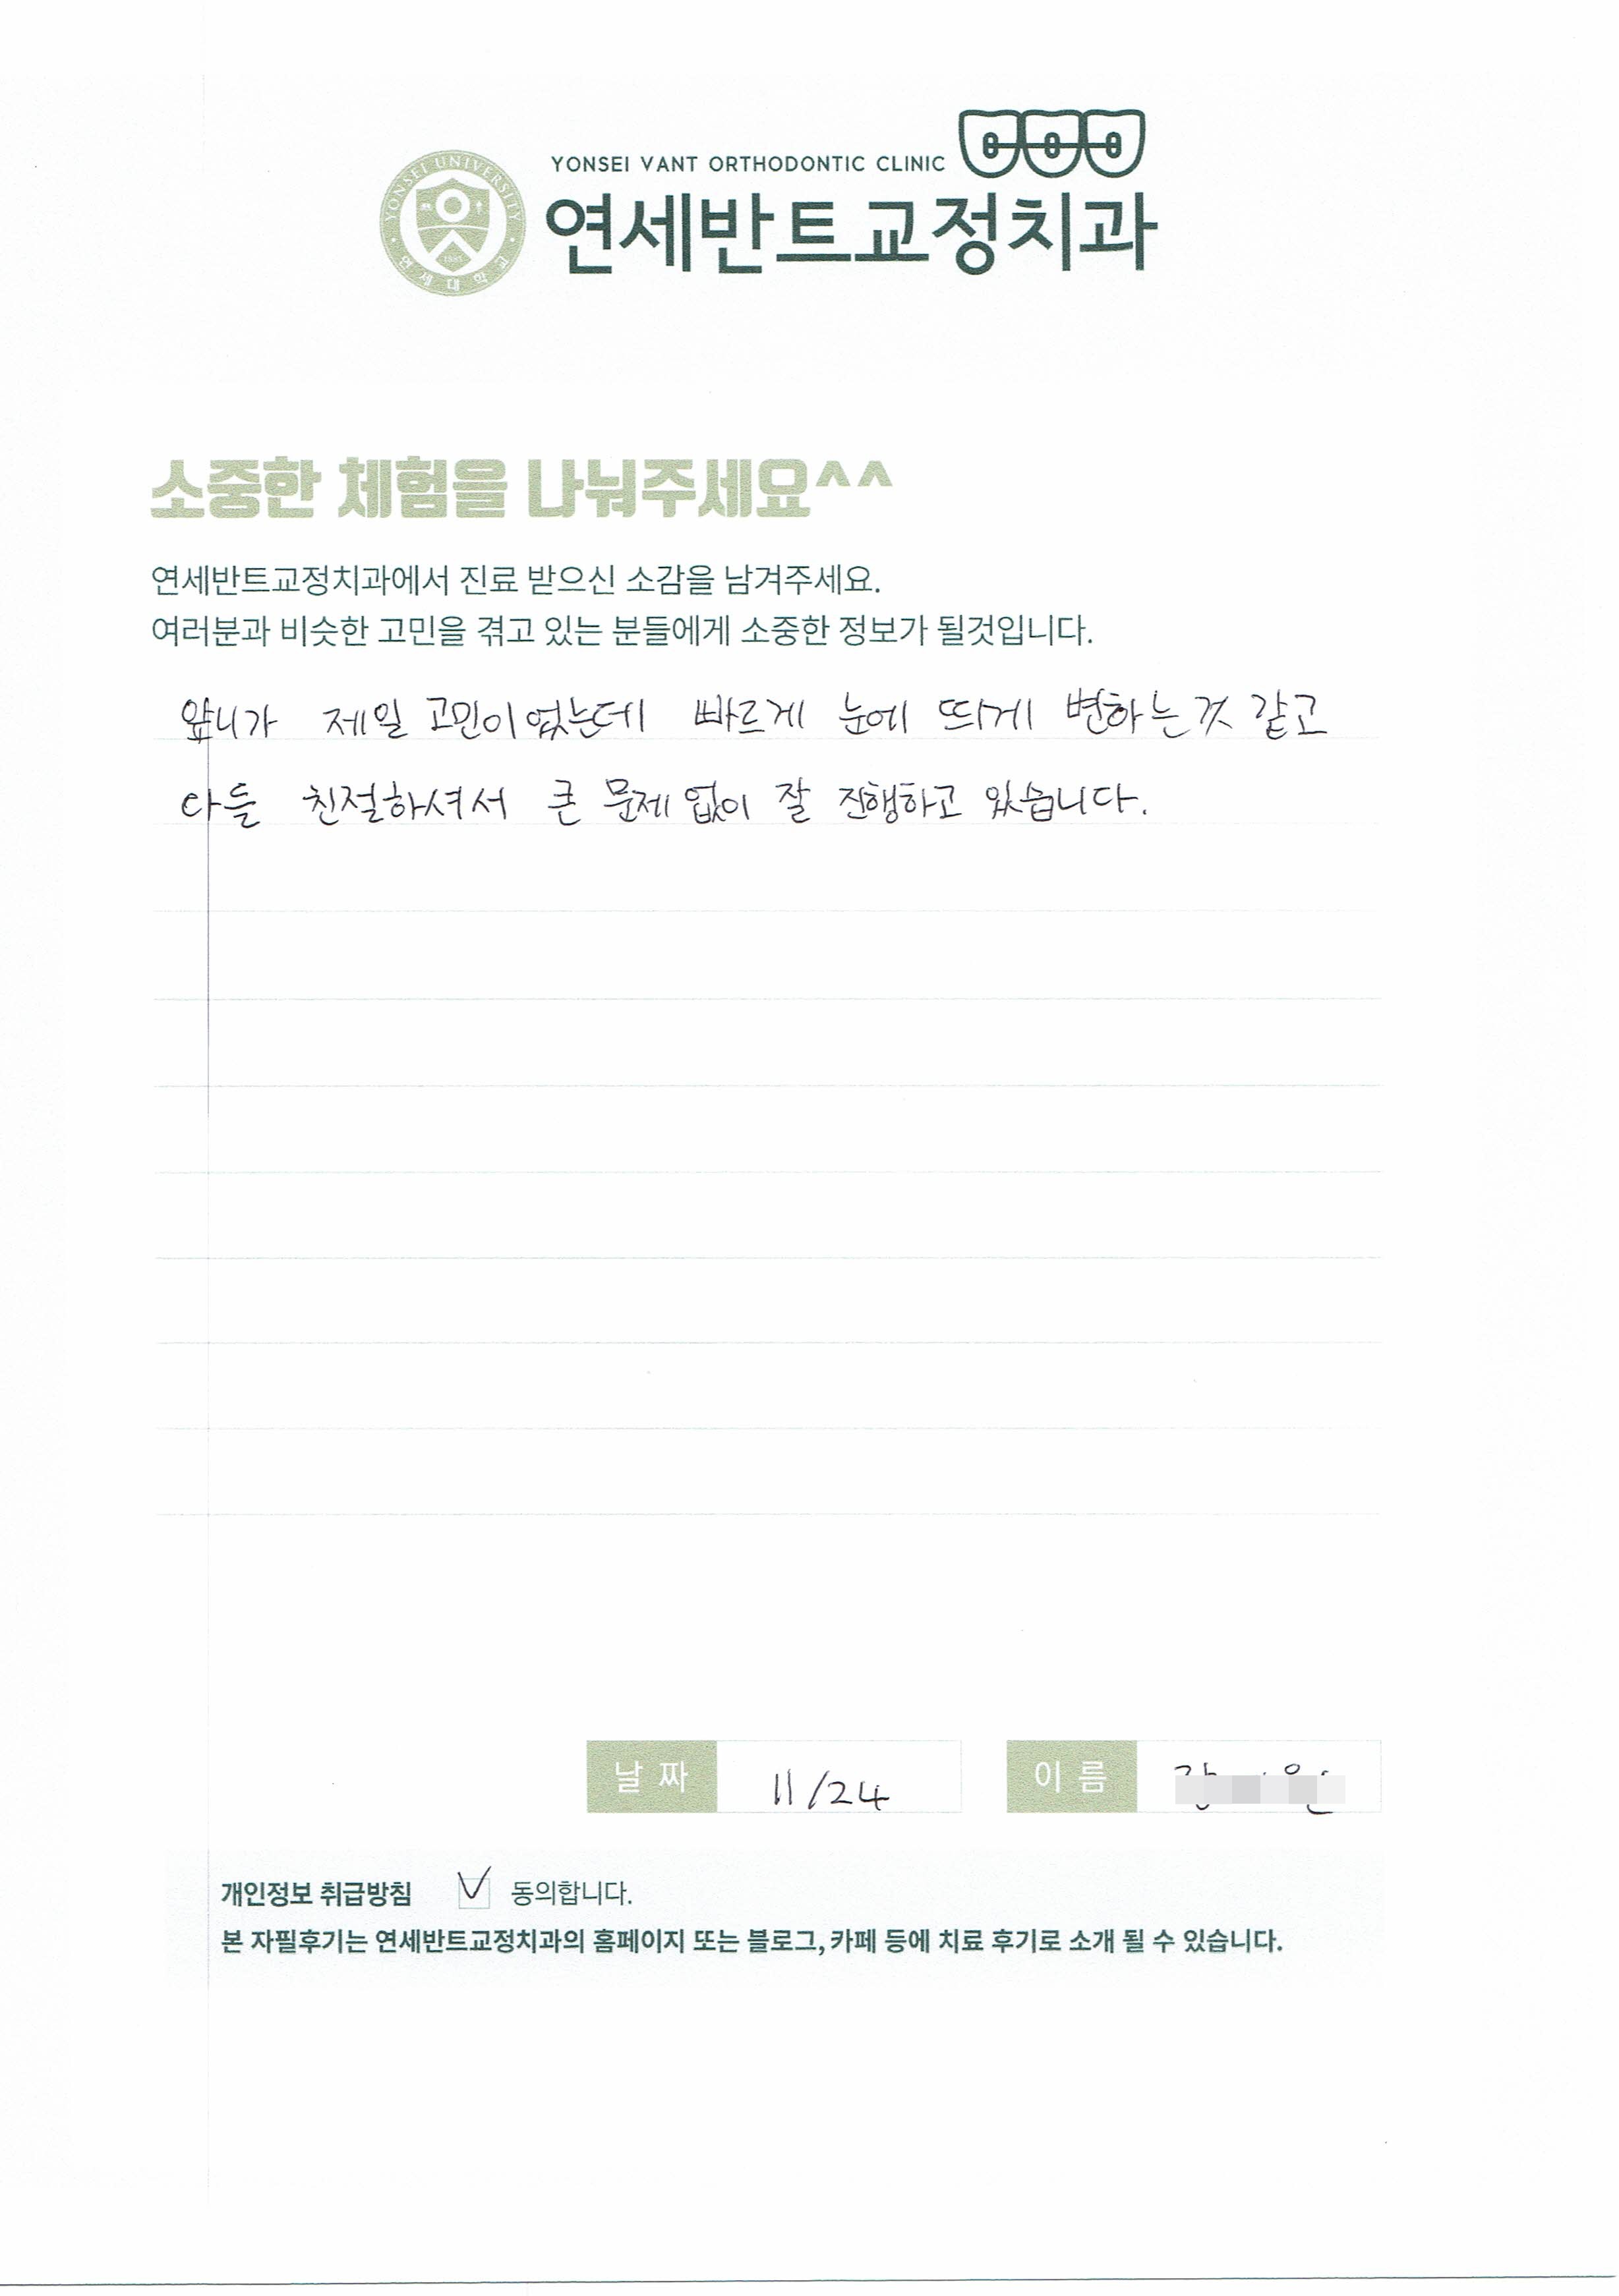 YONSEI VANT ORTHODONTIC CLINIC
YONSEI UNIVERSITY
연세대학교
연세반트교정치과
소중한 체험을 나눠주세요^^
연세반트교정치과에서 진료 받으신 소감을 남겨주세요.
여러분과 비슷한 고민을 겪고 있는 분들에게 소중한 정보가 될것입니다.
앞니가 제일 고민이었는데 빠르게 눈에 띄게 변하는것 같고
다들 친절하셔서 큰 문제 없이 잘 진행하고 있습니다.
날 짜 11/24 이 름
개인정보 취급방침 동의합니다.
본 자필후기는 연세반트교정치과의 홈페이지 또는 블로그, 카페 등에 치료 후기로 소개 될 수 있습니다.